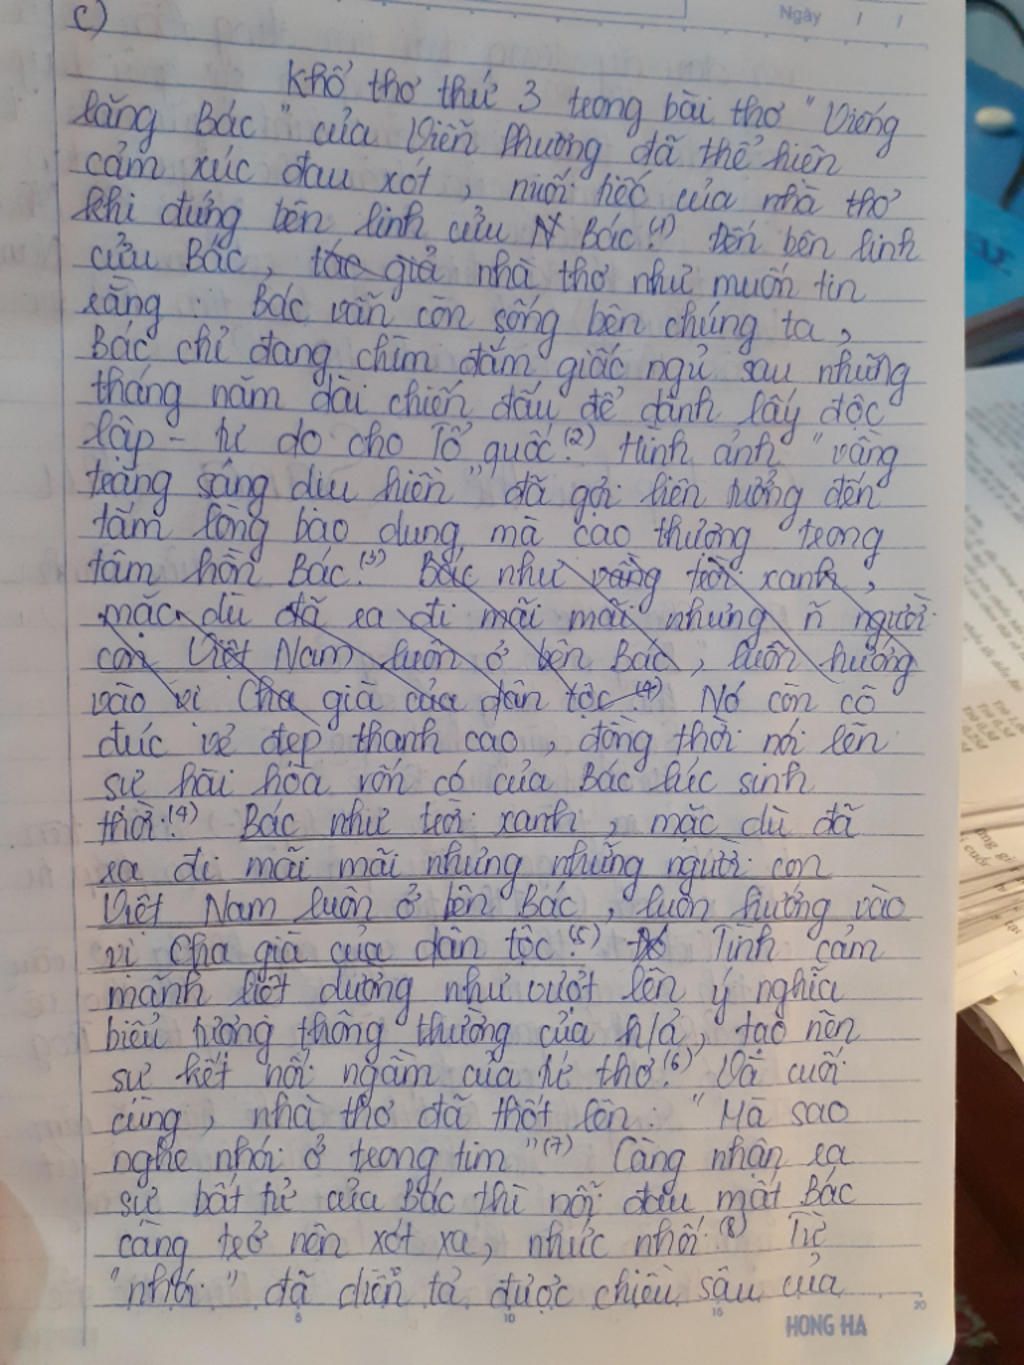 Ngày / /
c)
Khổ thơ thứ 3 trong bài thơ "Viếng
lăng Bác" của Viễn Phương đã thể hiện
cảm xúc đau xót, nuối tiếc của nhà thơ
khi đứng bên linh cửu N Bác.(1) Đến bên linh
cửu Bác, tác giả nhà thơ như muốn tin
rằng: Bác vẫn còn sống bên chúng ta,
Bác chỉ đang chìm đắm giấc ngủ sau những
tháng năm dài chiến đấu để dành lấy độc
lập - tự do cho Tổ quốc.(2) Hình ảnh "vầng
trăng sáng dịu hiền" đã gợi liên tưởng đến
tấm lòng bao dung mà cao thượng trong
tâm hồn Bác.(3) Bác như vầng trời xanh,
mặc dù đã ra đi mãi mãi nhưng ñ người
con Việt Nam luôn ở bên Bác, luôn hướng
vào vị Cha già của dân tộc.(4) Nó còn có
đức vẻ đẹp thanh cao, đồng thời nói lên
sự hài hòa vốn có của Bác lúc sinh
thời.(4) Bác như trời xanh, mặc dù đã
ra đi mãi mãi nhưng những người con
Việt Nam luôn ở bên Bác, luôn hướng vào
vị Cha già của dân tộc.(5) Tình cảm
mãnh liệt dường như vượt lên ý nghĩa
biểu tượng thông thường của h/ả, tạo nên
sự kết nối ngầm của tứ thơ.(6) Và cuối
cùng, nhà thơ đã thốt lên: "Mà sao
nghe nhói ở trong tim"(7) Càng nhận ra
sự bất tử của Bác thì nỗi đau mất Bác
càng trở nên xót xa, nhức nhối.(8) Từ
"nhói" đã diễn tả được chiều sâu của
5 10 15 20
HONG HA